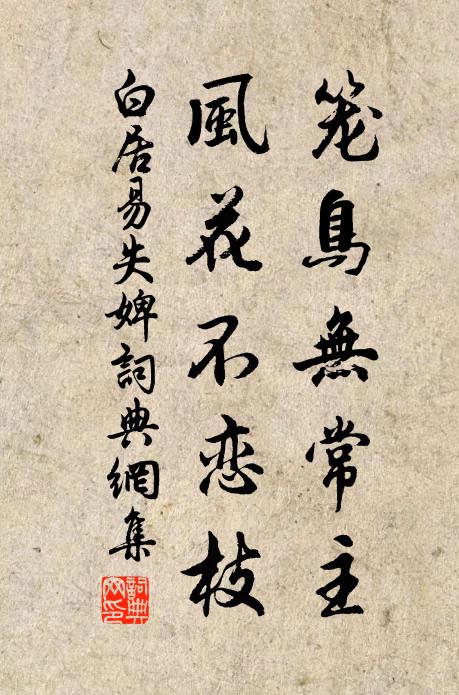 笼鳥無常主
風花不恋枝
白居易失婢詞典網集
詞典
网印